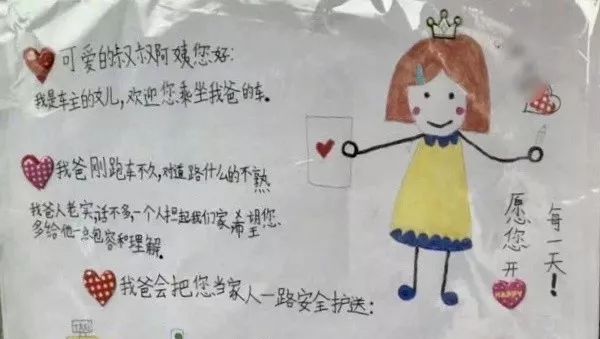 可爱的叔叔阿姨您好:
我是车主的女儿,欢迎您乘坐我爸的车。
我爸刚跑车不久,对道路什么的不熟
我爸人老实,话不多,一个人担起我们家希望您
多给他一点包容和理解。
我爸会把您当家人一路安全护送:
愿您开
HAPPY
每一天!
TAXI